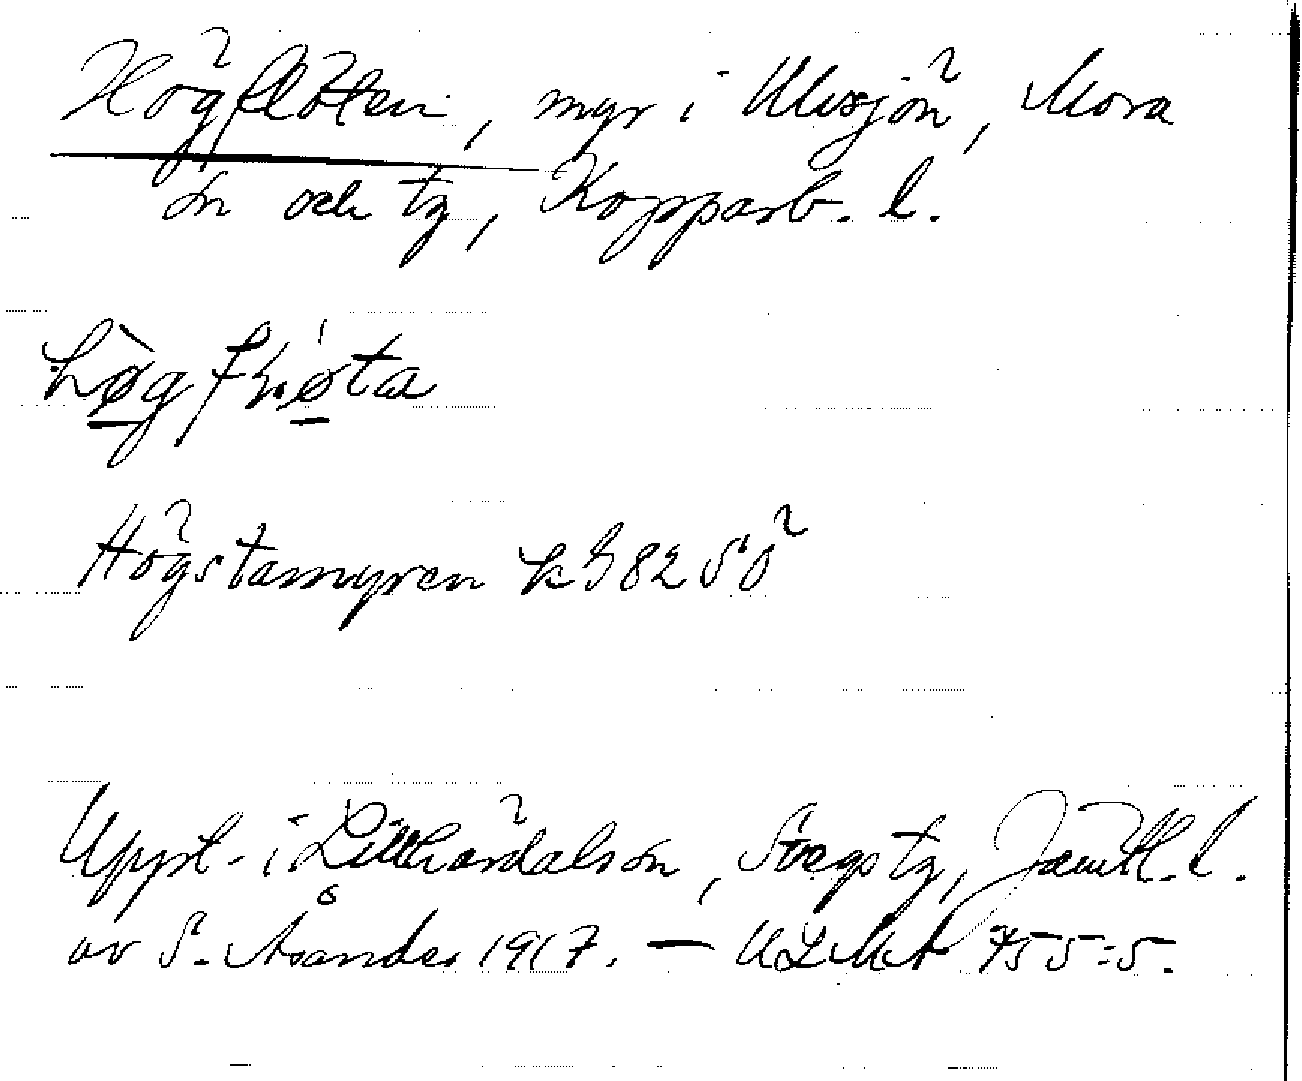 Högflöten, myr i Ulvsjön, Mora
sn och tg, Kopparb. l.
høgfɳøta
Högstamyren kb 82 SÖ
Uppt. i Lillhärdalsön, Svegs tg, Jämtl. l.
av S. Åsander 1917. — ULMA 455:5.